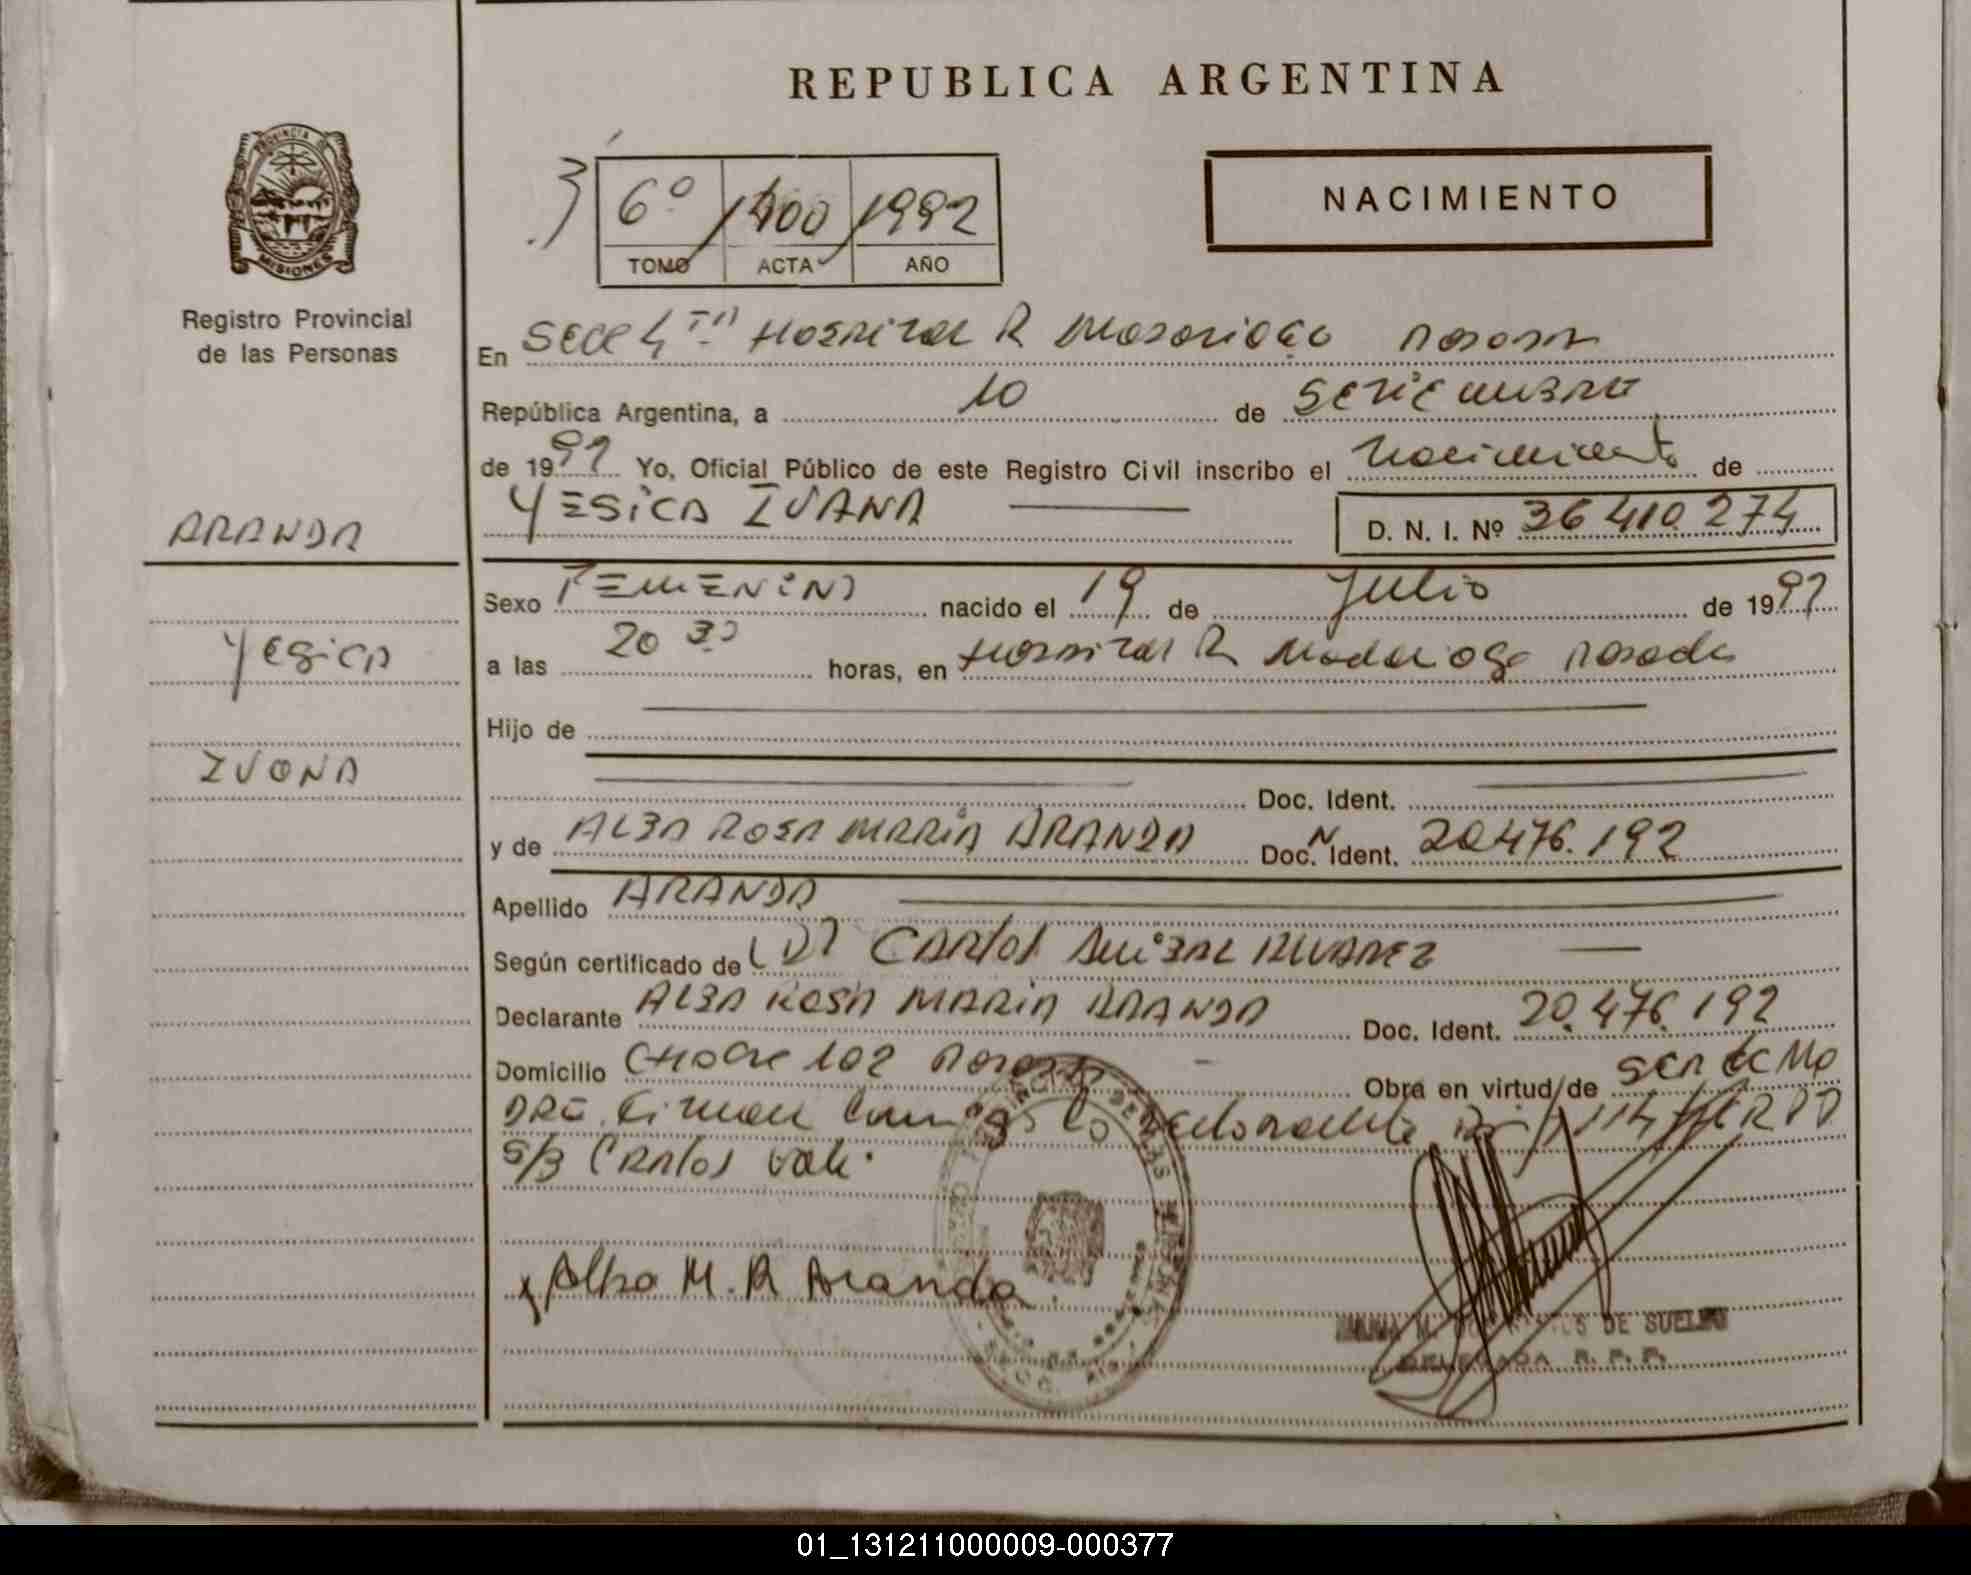 REPUBLICA ARGENTINA
NACIMIENTO
6º 1400 1992
TOMO ACTA AÑO
PROVINCIA DE
MISIONES
Registro Provincial
de las Personas
En Secc 4ta Hospital R Madariaga Posadas
República Argentina, a 10 de Setiembre
de 1992 Yo, Oficial Público de este Registro Civil inscribo el Nacimiento de
YESICA IVANA D. N. I. Nº 36 410 274
ARANDA
Sexo FEMENINO nacido el 19 de Julio de 1992
Yesica
a las 20 30 horas, en Hospital R Madariaga Posadas
Hijo de
IVANA
Doc. Ident.
y de ALBA ROSA MARIA ARANDA Doc. Ident. 20.476.192
Apellido ARANDA
Según certificado de Dr CARLOS ANIBAL ALVAREZ
Declarante ALBA ROSA MARIA ARANDA Doc. Ident. 20.476.192
Domicilio 102 Posadas Obra en virtud de ser la
Firman
S/B Carlos Vale.
Alba M. R Aranda
DE SUELDO
DELEGADA R. P. P.
01_131211000009-000377